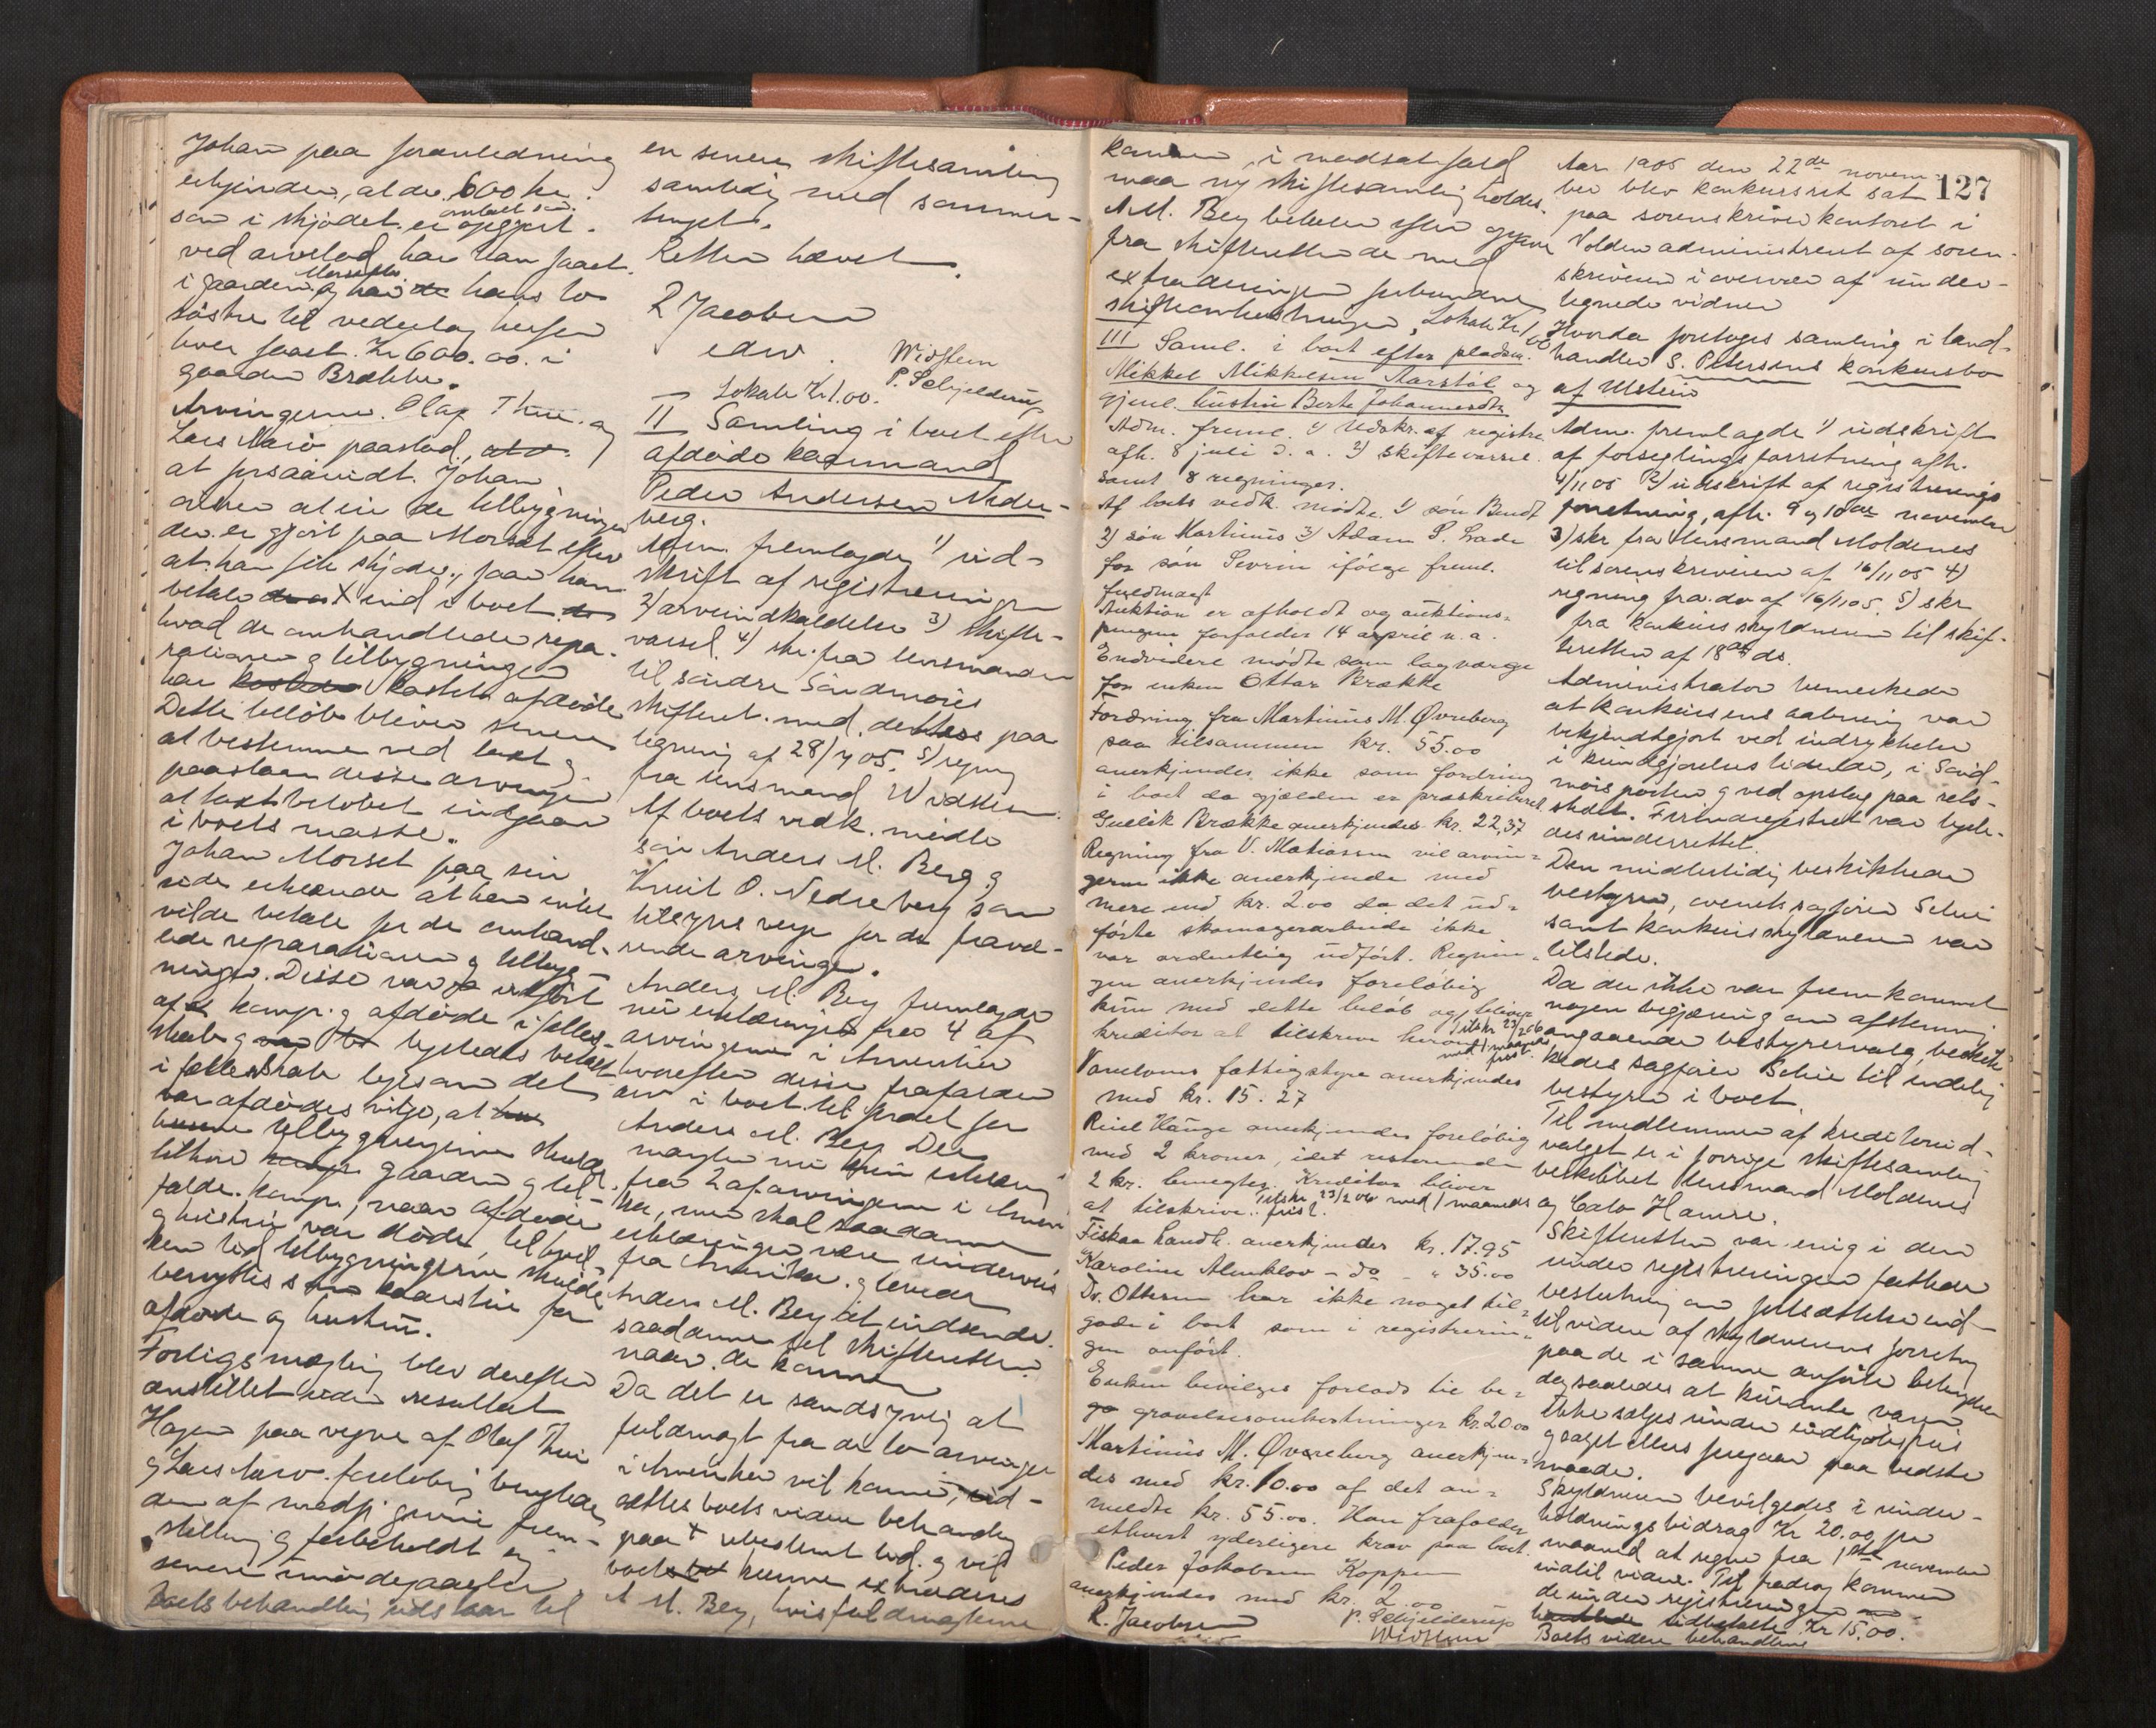 Johan paa foranledning
erkjender, at de 600 kr.
som i skjødet er omtalt som opgjort
ved arvelod har han faaet
i gaarden Morsæt og har hans to
søstre til vederlag herfor
hver faaet Kr 600.00 i
gaarden Brække.
Arvingerne Olaf Thue og
Lars Narø paastod,
at forsaavidt Johan
de tilbygninger
der er gjort paa Morsæt efter
at han fik skjøde, maa han
betale ind i boet
hvad de omhandlede repa-
rationer og tilbygninger
har kostet afdøde
Dette beløb bliver senere
at bestemme ved taxt og
paastaar disse arvinger
at taxtbeløbet indgaar
i boets masse.
Johan Morset paa sin
side erklærede at han intet
vilde betale for de omhand-
lede reparationer og tilbyg-
ninger. Disse var udført
af komp. og afdøde i fælles-
skab og ligeledes betalt
i fællesskab ligesom det
var afdødes vilje, at
tilbygningerne skulde
tilhøre gaarden og til-
falde komp., naar afdøde
og hustru var døde, til hvil-
ken tid tilbygningerne skulde
benyttes som kaarstue for
afdøde og hustru.
Forligsmægling blev derefter
anstillet uden resultat
Hagen paa vegne af Olaf Thue
og Lars Narø foreløbig benegtede
den af modp. givne frem-
stilling og forbeholdt sig
senere imødegaaelse
Boets behandling udstaar til
en senere skiftesamling
samtidig med sommer-
tinget.
Retten hævet.
R Jacobsen
edw.
Widsteen
P. Schjelderup
Lokale Kr 1.00.
II Samling i boet efter
afdøde kaarmand
Peder Andersen Nedre-
berg.
Adm. fremlagde 1) ud-
skrift af registreringen
2) arveindkaldelse 3) skifte-
varsel. 4) skr. fra lensmanden
til søndre Søndmørs
skifteret med dettes paa
tegning af 28/7 05. 5) regning
fra lensmand Widsteen.
Af boets vedk. mødte
søn Anders M. Berg og
Knut O. Nedreberg som
tilsyns verge for de fravæ-
rende arvinger.
Anders M. Berg fremlagde
nu erklæringer fra 4 af
arvingerne i Amerika
hvorefter disse frafalder
arv i boet til fordel for
Anders M. Berg Der
mangler nu kun erklæring
fra 2 af arvingerne i Ameri-
ka, men skal saadanne
erklæringer være underveis
fra Amerika og lovede
Anders M. Berg at indsende
saadanne til skifteretten
naar de kommer
Da det er sandsynlig at
fuldmagt fra de to arvinger
i Amerika vil komme, ud-
sættes boets videre behandling
paa ubestemt tid og vil
boet kunne extraderes
A M. Berg, hvis fuldmagterne
kommer, i modsat fald
maa ny skiftesamling holdes.
A M. Berg betaler efter opgjøer
fra skifteretten de med
extraderingen forbundne
skifteomkostninger, Lokale Kr 1.00
III Saml. i boet efter pladsm.
Mikkel Mikkelsen Aarstøl og
gjenl. hustru Berte Johannesdtr
Adm. freml. 1) Udskr. af registre
afh. 8 juli d. a. 2) skiftevarsel
samt 8 regninger.
Af boets vedk. mødte 1) søn Bendt
2) søn Martinus 3) Adam S. Lade
for søn Sevrin ifølge freml.
fuldmagt
Auktion er afholdt og auktions-
pengene forfalder 14 april n. a.
Endvidere mødte som lagværge
for enken Ottar Brække
Fordring fra Martinus M. Øvreberg
paa tilsammen kr. 55.00
anerkjendes ikke som fordring
i boet da gjælden er præskriberet
Gudlik Brække anerkjendes kr. 22,37
Regning fra V. Matiassen vil arvin-
gerne ikke anerkjende med
mere end kr. 2.00 da det ud-
førte skomagerarbeide ikke
var ordentlig udført. Regnin-
gen anerkjendes foreløbig
kun med dette beløb og bliver
kreditor at tilskrive herom Tilskr 23/2 06
med 1 maaneds frist.
Vanelvens fattigstyre anerkjendes
med kr. 15.27
Reiel Hauge anerkjendes foreløbig
med 2 kroner, idet resterende
2 kr. benegtes. Kreditor bliver
at tilskrive. Tilskr. 23/2 06 med 1 maaneds frist.
Fiskaa Landh. anerkjendes kr. 17.95
Karoline Almklov – do – " 35.00
Dr. Ottersen har ikke noget til-
gode i boet som i registrerin-
gen anført.
Enken bevilges forlods til be-
gravelsesomkostninger kr. 20.00
Martinus M. Øvreberg anerkjen-
des med kr. 10.00 af det an-
meldte kr. 55.00. Han frafalder
ethvert yderligere krav paa boet.
Peder Jakobsen Koppen
anerkjendes med kr. 2.00
R. Jacobsen
P. Schjelderup
Widsteen
127
Aar 1905 den 22de novem-
ber blev konkursret sat
paa sorenskriverkontoret i
Volden administreret af soren-
skriveren i overvær af under-
tegnede vidner
Hvorda foretoges samling i land-
handler S. Petersens konkursbo
af Ulstein
Adm. fremlagde 1) udskrift
af forseglingsforretning afh.
4/11 05 2) udskrift af registrerings
forretning, afh. 9 og 10de november
3) skr fra lensmand Moldenes
til sorenskriveren af 16/11 05 4)
regning fra do af 16/11 05. 5) skr
fra konkursskyldneren til skif-
teretten af 18de ds.
Administrator bemerkede
at konkursens aabning var
bekjendtgjort ved indrykkelse
i kundgjørelsestidende, i Sønd-
mørsposten og ved opslag paa rets-
stedet. Firmaregistret var ligele-
des underrettet.
Den midlertidig beskikkede
bestyrer, overretssagfører Schie
samt konkursskyldneren var
tilstede.
Da der ikke var fremkommet
nogen begjæring om afstemning
angaaende bestyrervalg, beskik-
kedes sagfører Schie til endelig
bestyrer i boet.
Til medlemmer af kreditorud-
valget er i forrige skiftesamling
beskikket lensmand Moldenes
og Cato Hamre.
Skifteretten var enig i den
under registreringen fattede
beslutning om fortsættelse ind-
til videre af skyldnerens forretning
paa de i samme anførte betingelser
dog saaledes at kurante varer
ikke sælges under indkjøbspris
og salget ellers foregaar paa bedste
maade.
Skyldneren bevilgedes i under-
holdningsbidrag Kr 20.00 pr
maaned at regne fra 1ste november
indtil videre. Til fradrag kommer
de under registreringen
udbetalte Kr 15.00.
Boets videre behandling